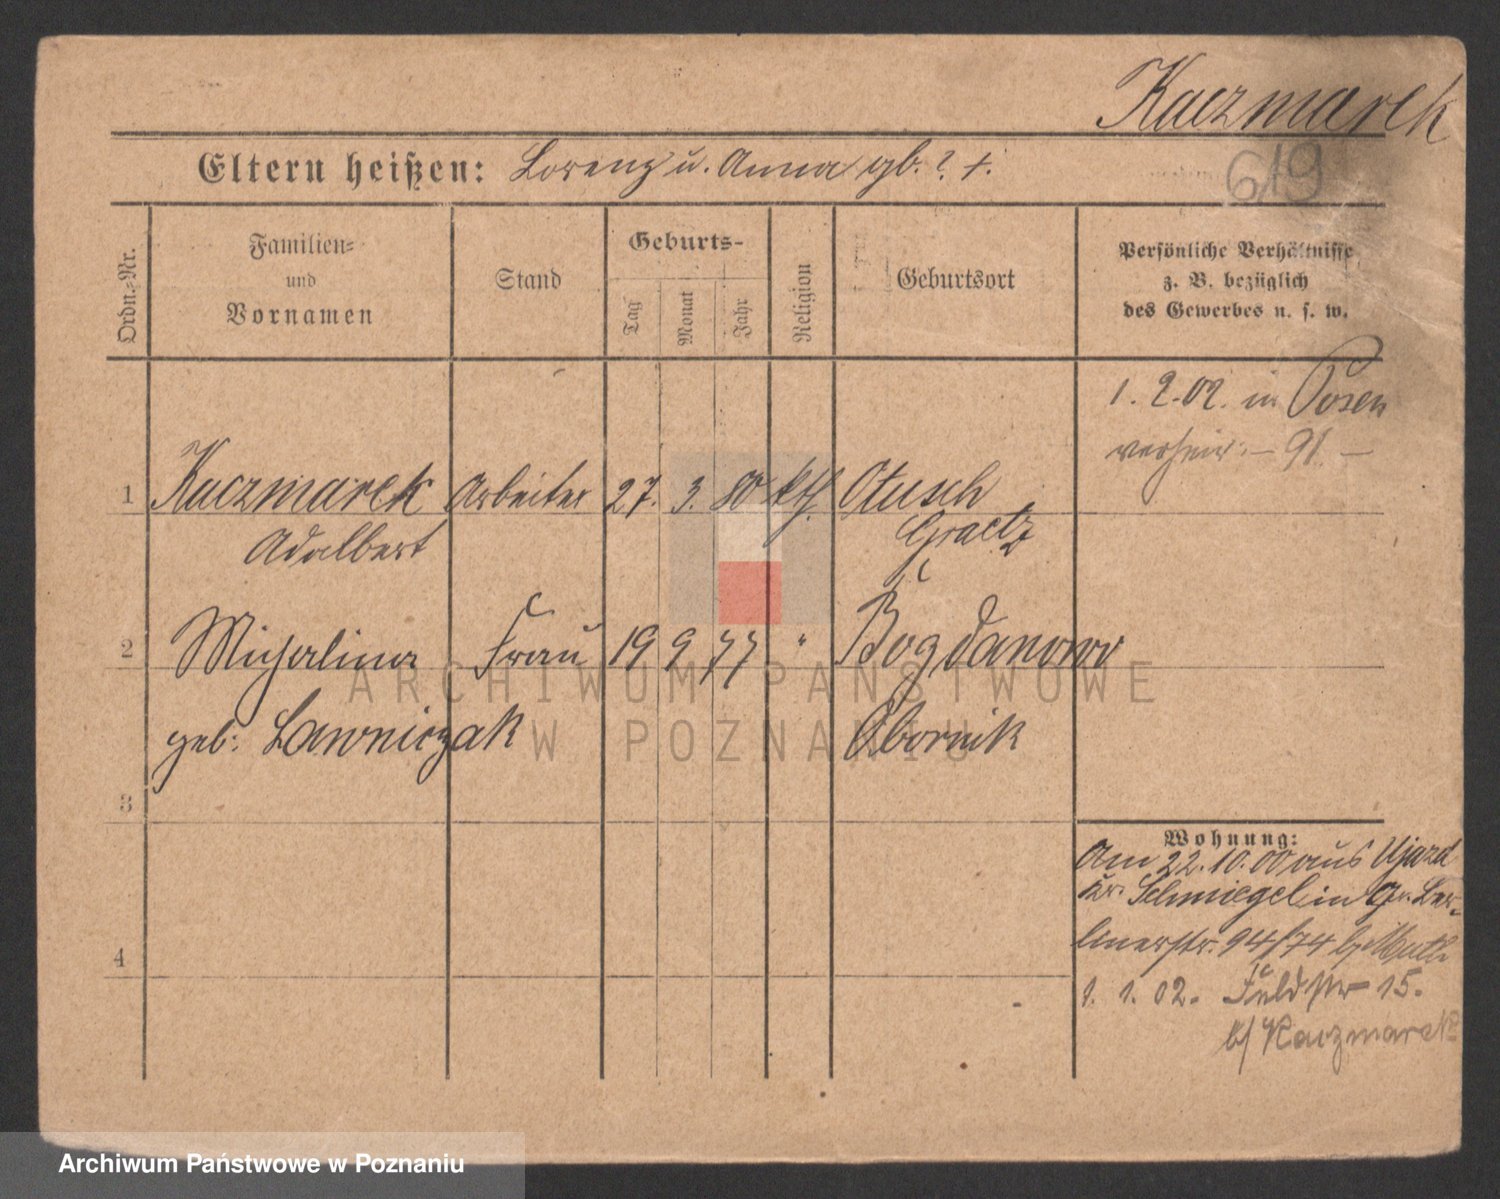 Kaczmarek
619
Eltern heißen: Lorenz u. Anna gb. ? +.
Ordn.-Nr.
Familien-
und
Vornamen
Stand
Geburts-
Tag
Monat
Jahr
Religion
Geburtsort
Persönliche Verhältnisse
z. B. bezüglich
des Gewerbes u. s. w.
1. 2. 02. in Posen
verheir. – 91. –
1 Kaczmarek Arbeiter 27. 3. 80 kth. Otusch
Adalbert Graetz
2 Michalina Frau 19 9 77 " Bogdanowo
geb. Lawniczak Obornik
3
4
Wohnung:
Am 22.10.00 aus Ujazd
Kr. Schmiegel in Gr. Ber-
linerstr. 94/74 b/
1. 1. 02. Feldstr 15.
b/ Kaczmarek
ARCHIWUM PAŃSTWOWE
W POZNANIU
Archiwum Państwowe w Poznaniu